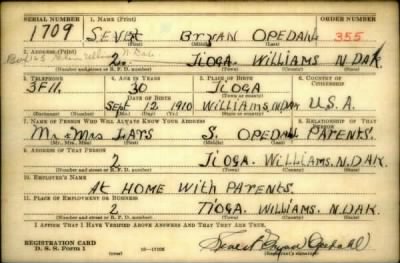 SERIAL NUMBER 1. NAME (Print) ORDER NUMBER
1709 SEVERT BRYAN OPEDAHL 355
(First) (Middle) (Last)
2. ADDRESS (Print)
2. TIOGA. WILLIAMS N.DAK.
(Number and street or R. F. D. number) (Town) (County) (State)
3. TELEPHONE 4. AGE IN YEARS 5. PLACE OF BIRTH 6. COUNTRY OF CITIZENSHIP
3F11. 30 TIOGA
DATE OF BIRTH (Town or county)
SEPT. 12 1910 WILLIAMS, N.DAK U.S.A.
(Exchange) (Number) (Mo.) (Day) (Yr.) (State or country)
7. NAME OF PERSON WHO WILL ALWAYS KNOW YOUR ADDRESS 8. RELATIONSHIP OF THAT PERSON
Mr & Mrs LARS S. OPEDAHL PARENTS.
(Mr., Mrs., Miss) (First) (Middle) (Last)
9. ADDRESS OF THAT PERSON
2 TIOGA. WILLIAMS. N.DAK.
(Number and street or R. F. D. number) (Town) (County) (State)
10. EMPLOYER'S NAME
At HOME With PARENTS.
11. PLACE OF EMPLOYMENT OR BUSINESS
2 TIOGA. WILLIAMS. N.DAK.
(Number and street or R. F. D. number) (Town) (County) (State)
I AFFIRM THAT I HAVE VERIFIED ABOVE ANSWERS AND THAT THEY ARE TRUE.
REGISTRATION CARD
D. S. S. Form 1 (over) 16-17105 Bryan Opedahl